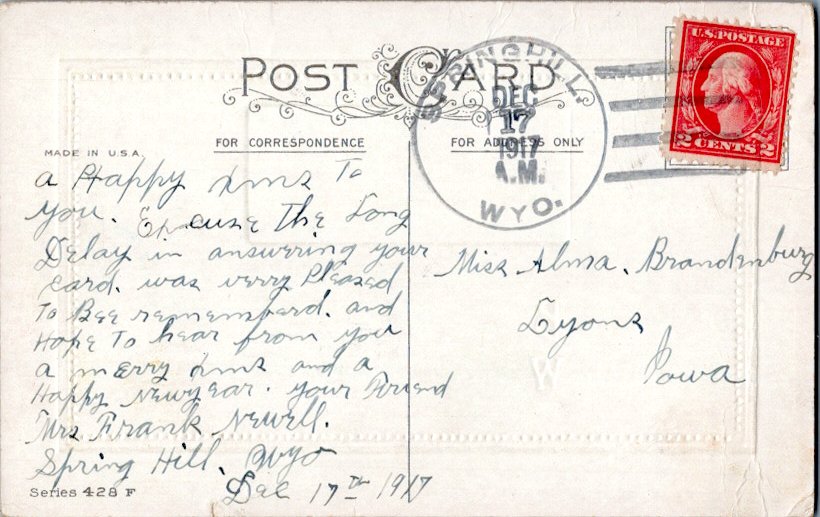 POST CARD
SPRINGHILL,
DEC
17
1917
A.M.
WYO.
U.S. POSTAGE
2 CENTS 2
FOR CORRESPONDENCE
FOR ADDRESS ONLY
MADE IN U.S.A.
a Happy Xmas To
you. Excuse The Long
Delay in answering your
card. was verry Pleased
To Bee rememberd. and
Hope To hear from you
a merry Xmas and a
Happy Newyear. your Friend
Mrs. Frank Newell.
Spring Hill. Wyo
Dec 17th 1917
Miss Alma. Brandenburg
Lyons
Iowa
Series 428 F